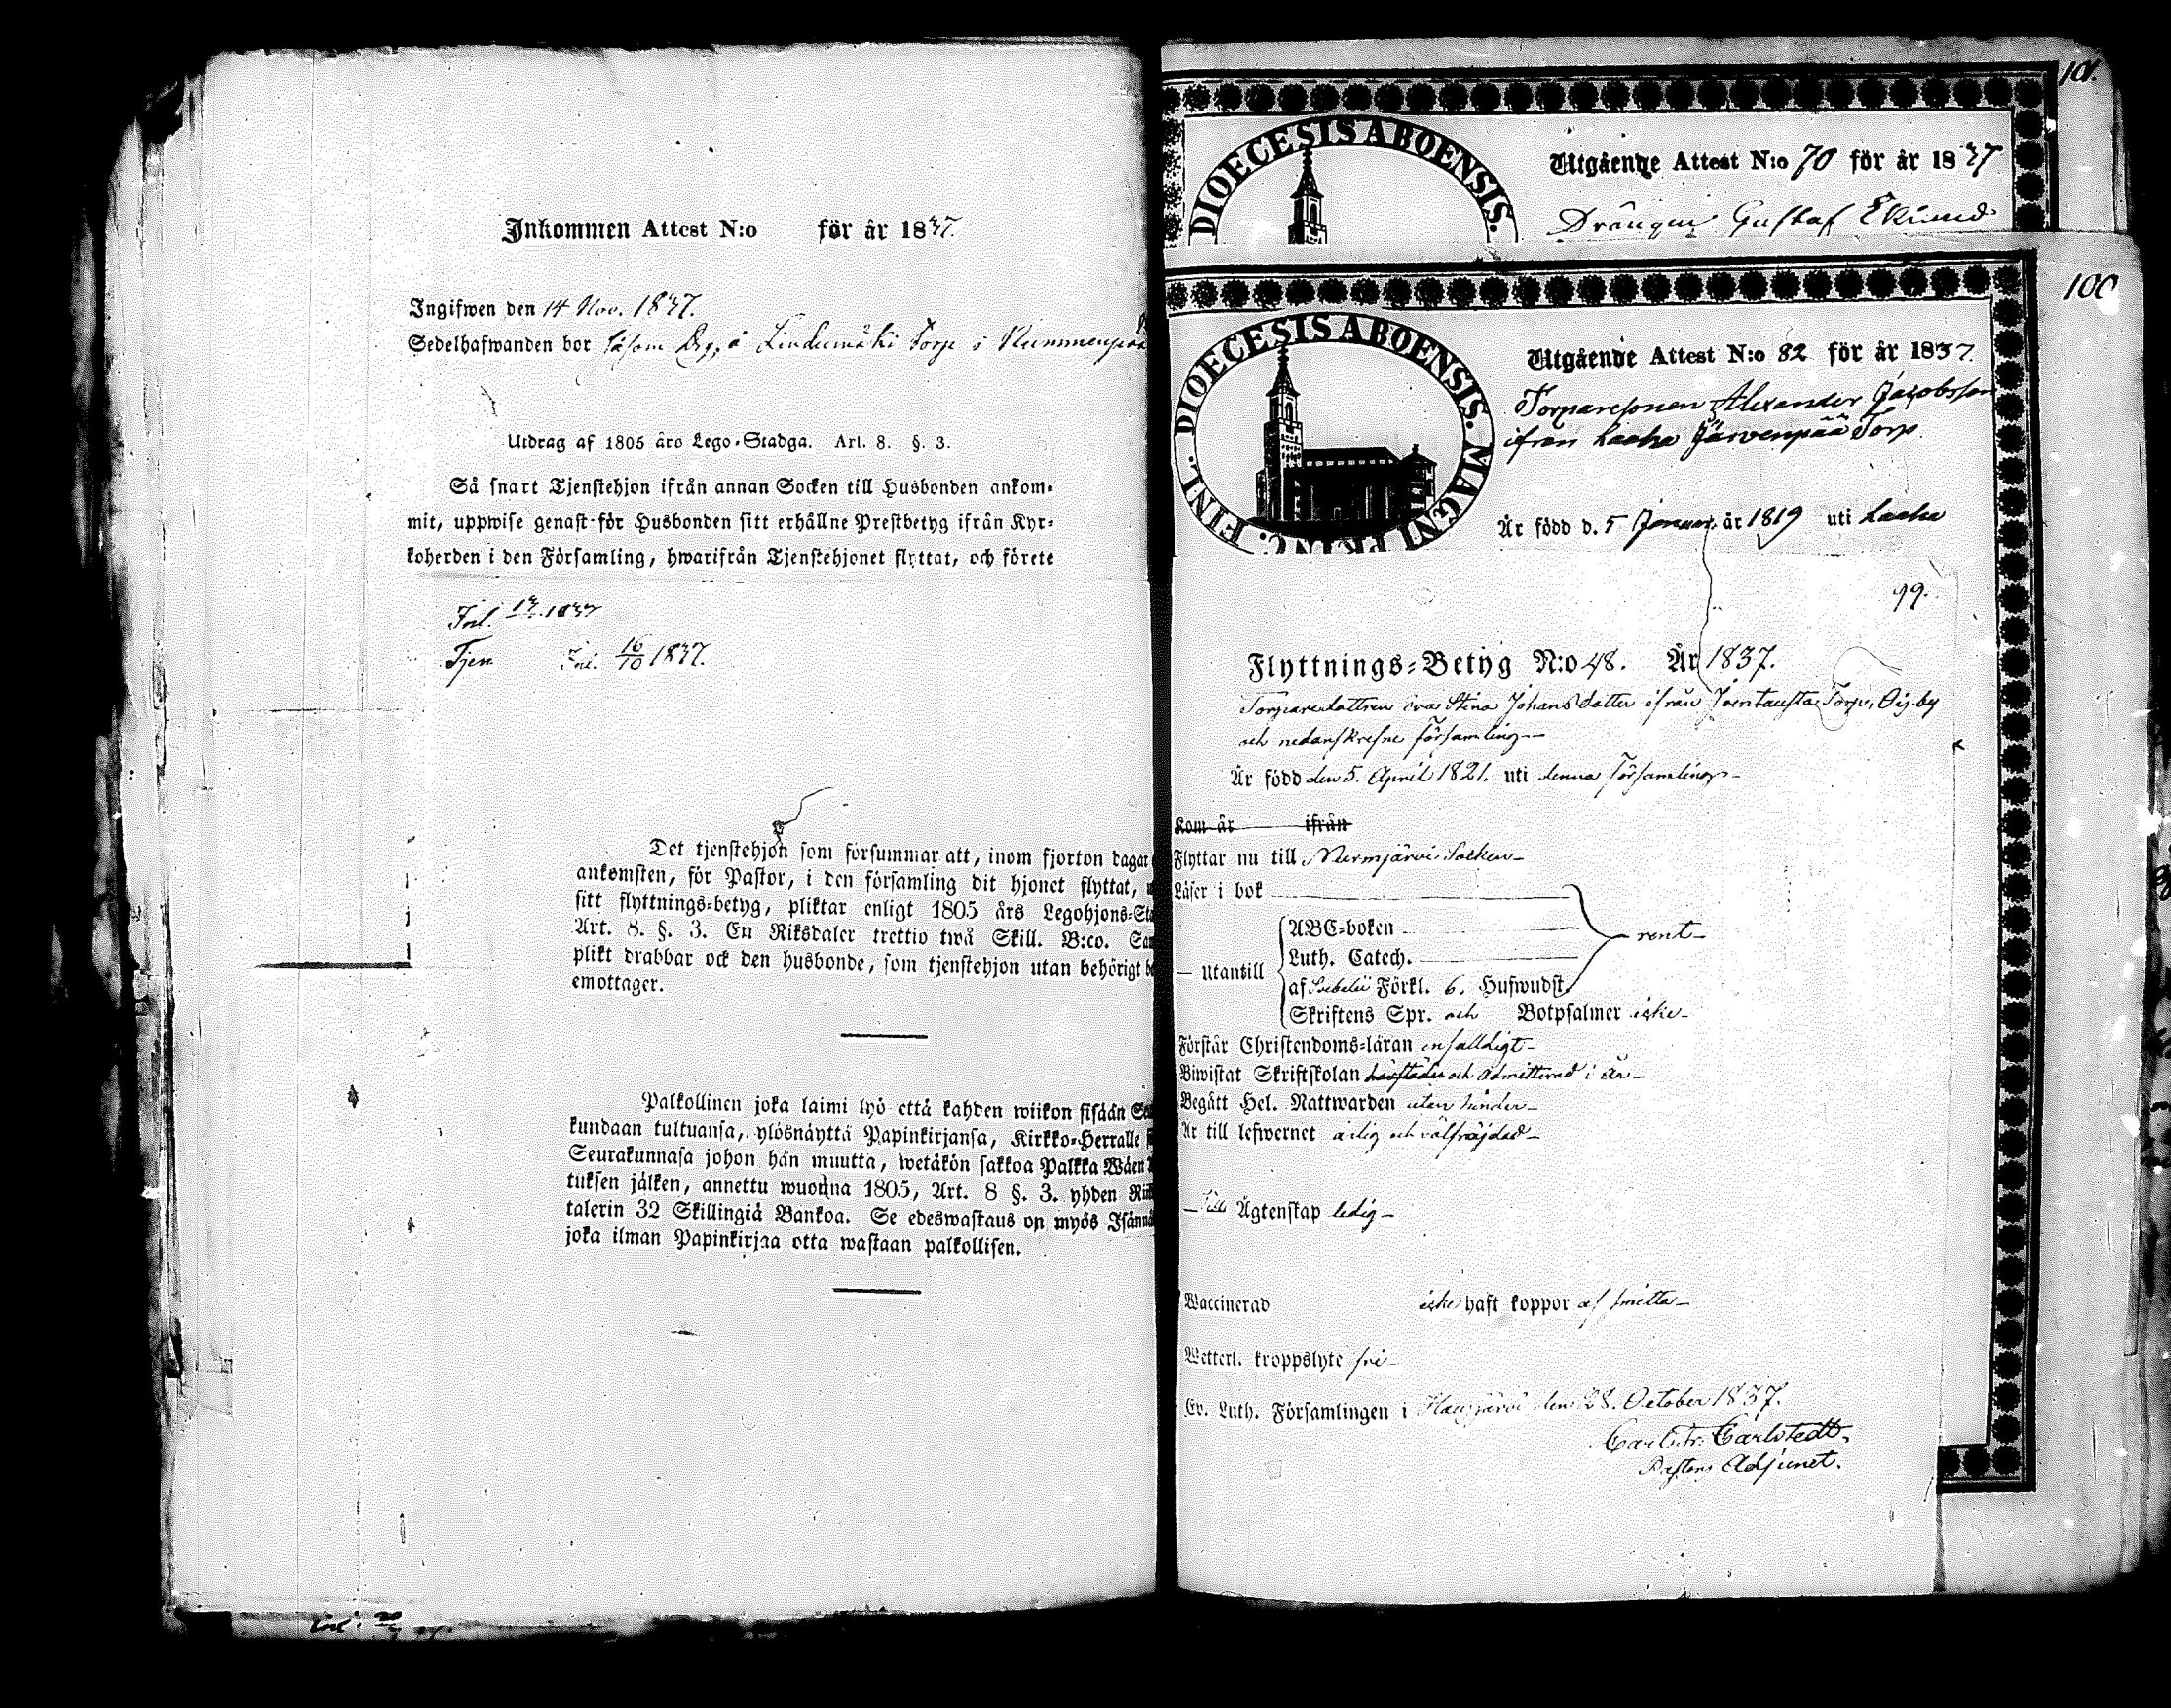 Inkommen Attest N:o för år 1837.
Ingifwen den 14 Nov. 1837.
Sedelhafwanden bor såsom Drg, å Lindumäki Torp i
Utdrag af 1805 års Lego-Stadga. Art. 8. §. 3.
Så snart Tjenstehjon ifrån annan Socken till Husbonden ankom-
mit, uppwise genast för Husbonden sitt erhållne Prestbetyg ifrån Kyr-
koherden i den Församling, hwarifrån Tjenstehjonet flyttat, och förete
1837
Tjen 16/10 1837.
Det tjenstehjon som försummar att, inom fjorton dagar
ankomsten, för Pastor, i den församling dit hjonet flyttat,
sitt flyttnings-betyg, pliktar enligt 1805 års Legohjons-Sta
Art. 8. §. 3. En Riksdaler trettio twå Skill. B:co. Sam
plikt drabbar ock den husbonde, som tjenstehjon utan behörigt be
emottager.
Palkollinen joka laimi lyö että kahden wiikon sisään Seu
kundaan tultuansa, ylösnäyttä Papinkirjansa, Kirkko-Herralle
Seurakunnasa johon hän muutta, wetäkön sakkoa Palkka Wäen
tuksen jälken, annettu wuonna 1805, Art. 8 §. 3. yhden Riik
talerin 32 Skillingiä Bankoa. Se edeswastaus on myös Isännä
joka ilman Papinkirjaa otta wastaan palkollisen.
101.
DIOECESIS ABOENSIS.
Utgående Attest N:o 70 för år 1837
Drängen Gustaf Eklund
100
DIOECESIS ABOENSIS. MAGNI PRINC. FINL.
Utgående Attest N:o 82 för år 1837.
Torparesonen Alexander Jacobsson
ifrån Laaha Järvenpää Torp
Är född d. 5 Januar. år 1819 uti Laaha
99.
Flyttnings-Betyg N:o 48. År 1837.
Torparedottren Eva Stina Johansdotter ifrån Torp,
och nedanskrefne församling
Är född den 5. April 1821. uti denna Församling
Kom år ifrån
Flyttar nu till Nurmjärvi Socken
Läser i bok
ABC-boken
rent
Luth. Catech.
Utantill
af Svebelii Förkl. 6. Hufwudst.
Skriftens Spr. och Botpsalmer icke
Förstår Christendoms-läran enfalldigt
Biwistat Skriftskolan och admitterad i år
Begått Hel. Nattwarden utan hinder
Är till lefwernet ärlig och välfräjdad
Till Ägtenskap ledig
Waccinerad icke haft koppor af smitta
Wetterl. kroppslyte fri
Ev. Luth. Församlingen i Hausjärvi den 28. October 1837.
Carl Fr. Carlstedt.
Pastors Adjunct.